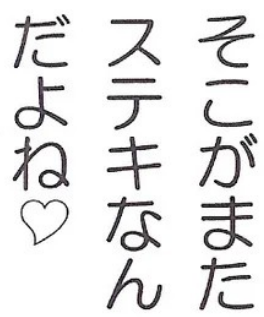 そこがまた
ステキなん
だよね♡